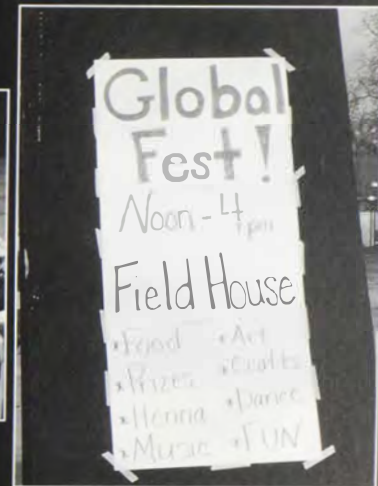 Global
Fest!
Noon - 4 pm
Field House
* Food
* Prizes
* Henna
* Music
* Art
* Crafts
* Dance
* FUN